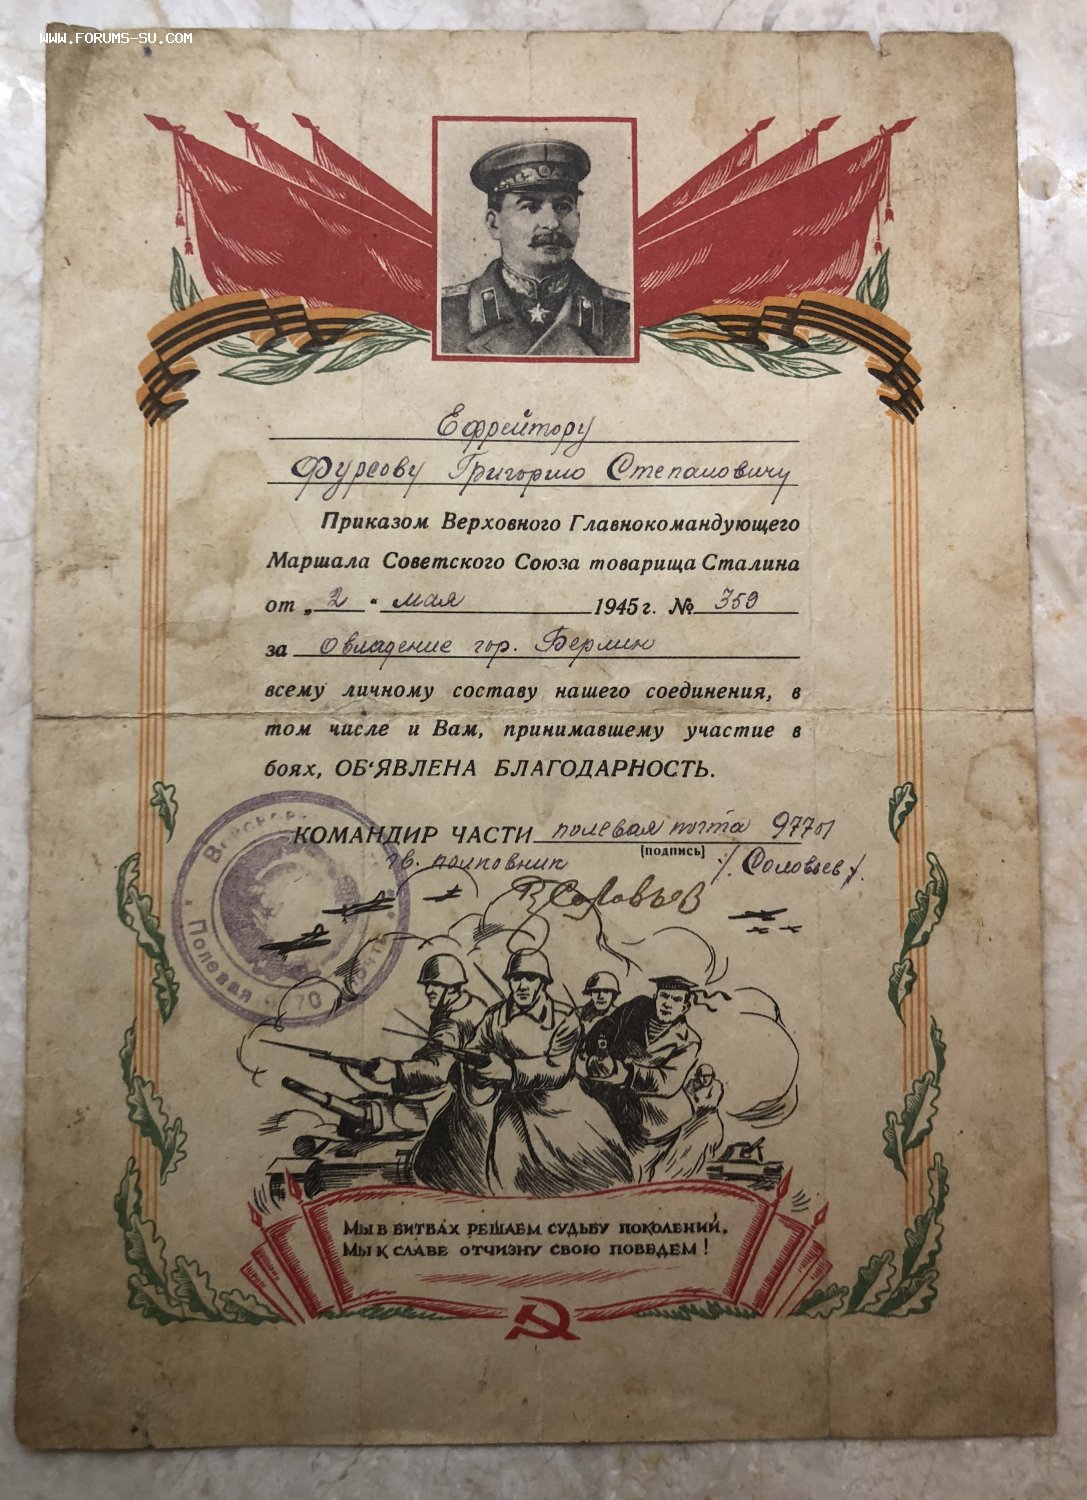 WWW.FORUMS-SU.COM
Ефрейтору
Фурсову Григорию Степановичу
Приказом Верховного Главнокомандующего
Маршала Советского Союза товарища Сталина
от „ 2 “ мая 1945 г. № 359
за Овладение гор. Берлин
всему личному составу нашего соединения, в
том числе и Вам, принимавшему участие в
боях, ОБ‘ЯВЛЕНА БЛАГОДАРНОСТЬ.
КОМАНДИР ЧАСТИ полевая почта 97701
(подпись)
гв. полковник /Соловьев/.
ВСоловьев
Полевая
МЫ В БИТВАХ РЕШАЕМ СУДЬБУ ПОКОЛЕНИЙ,
МЫ К СЛАВЕ ОТЧИЗНУ СВОЮ ПОВЕДЕМ!